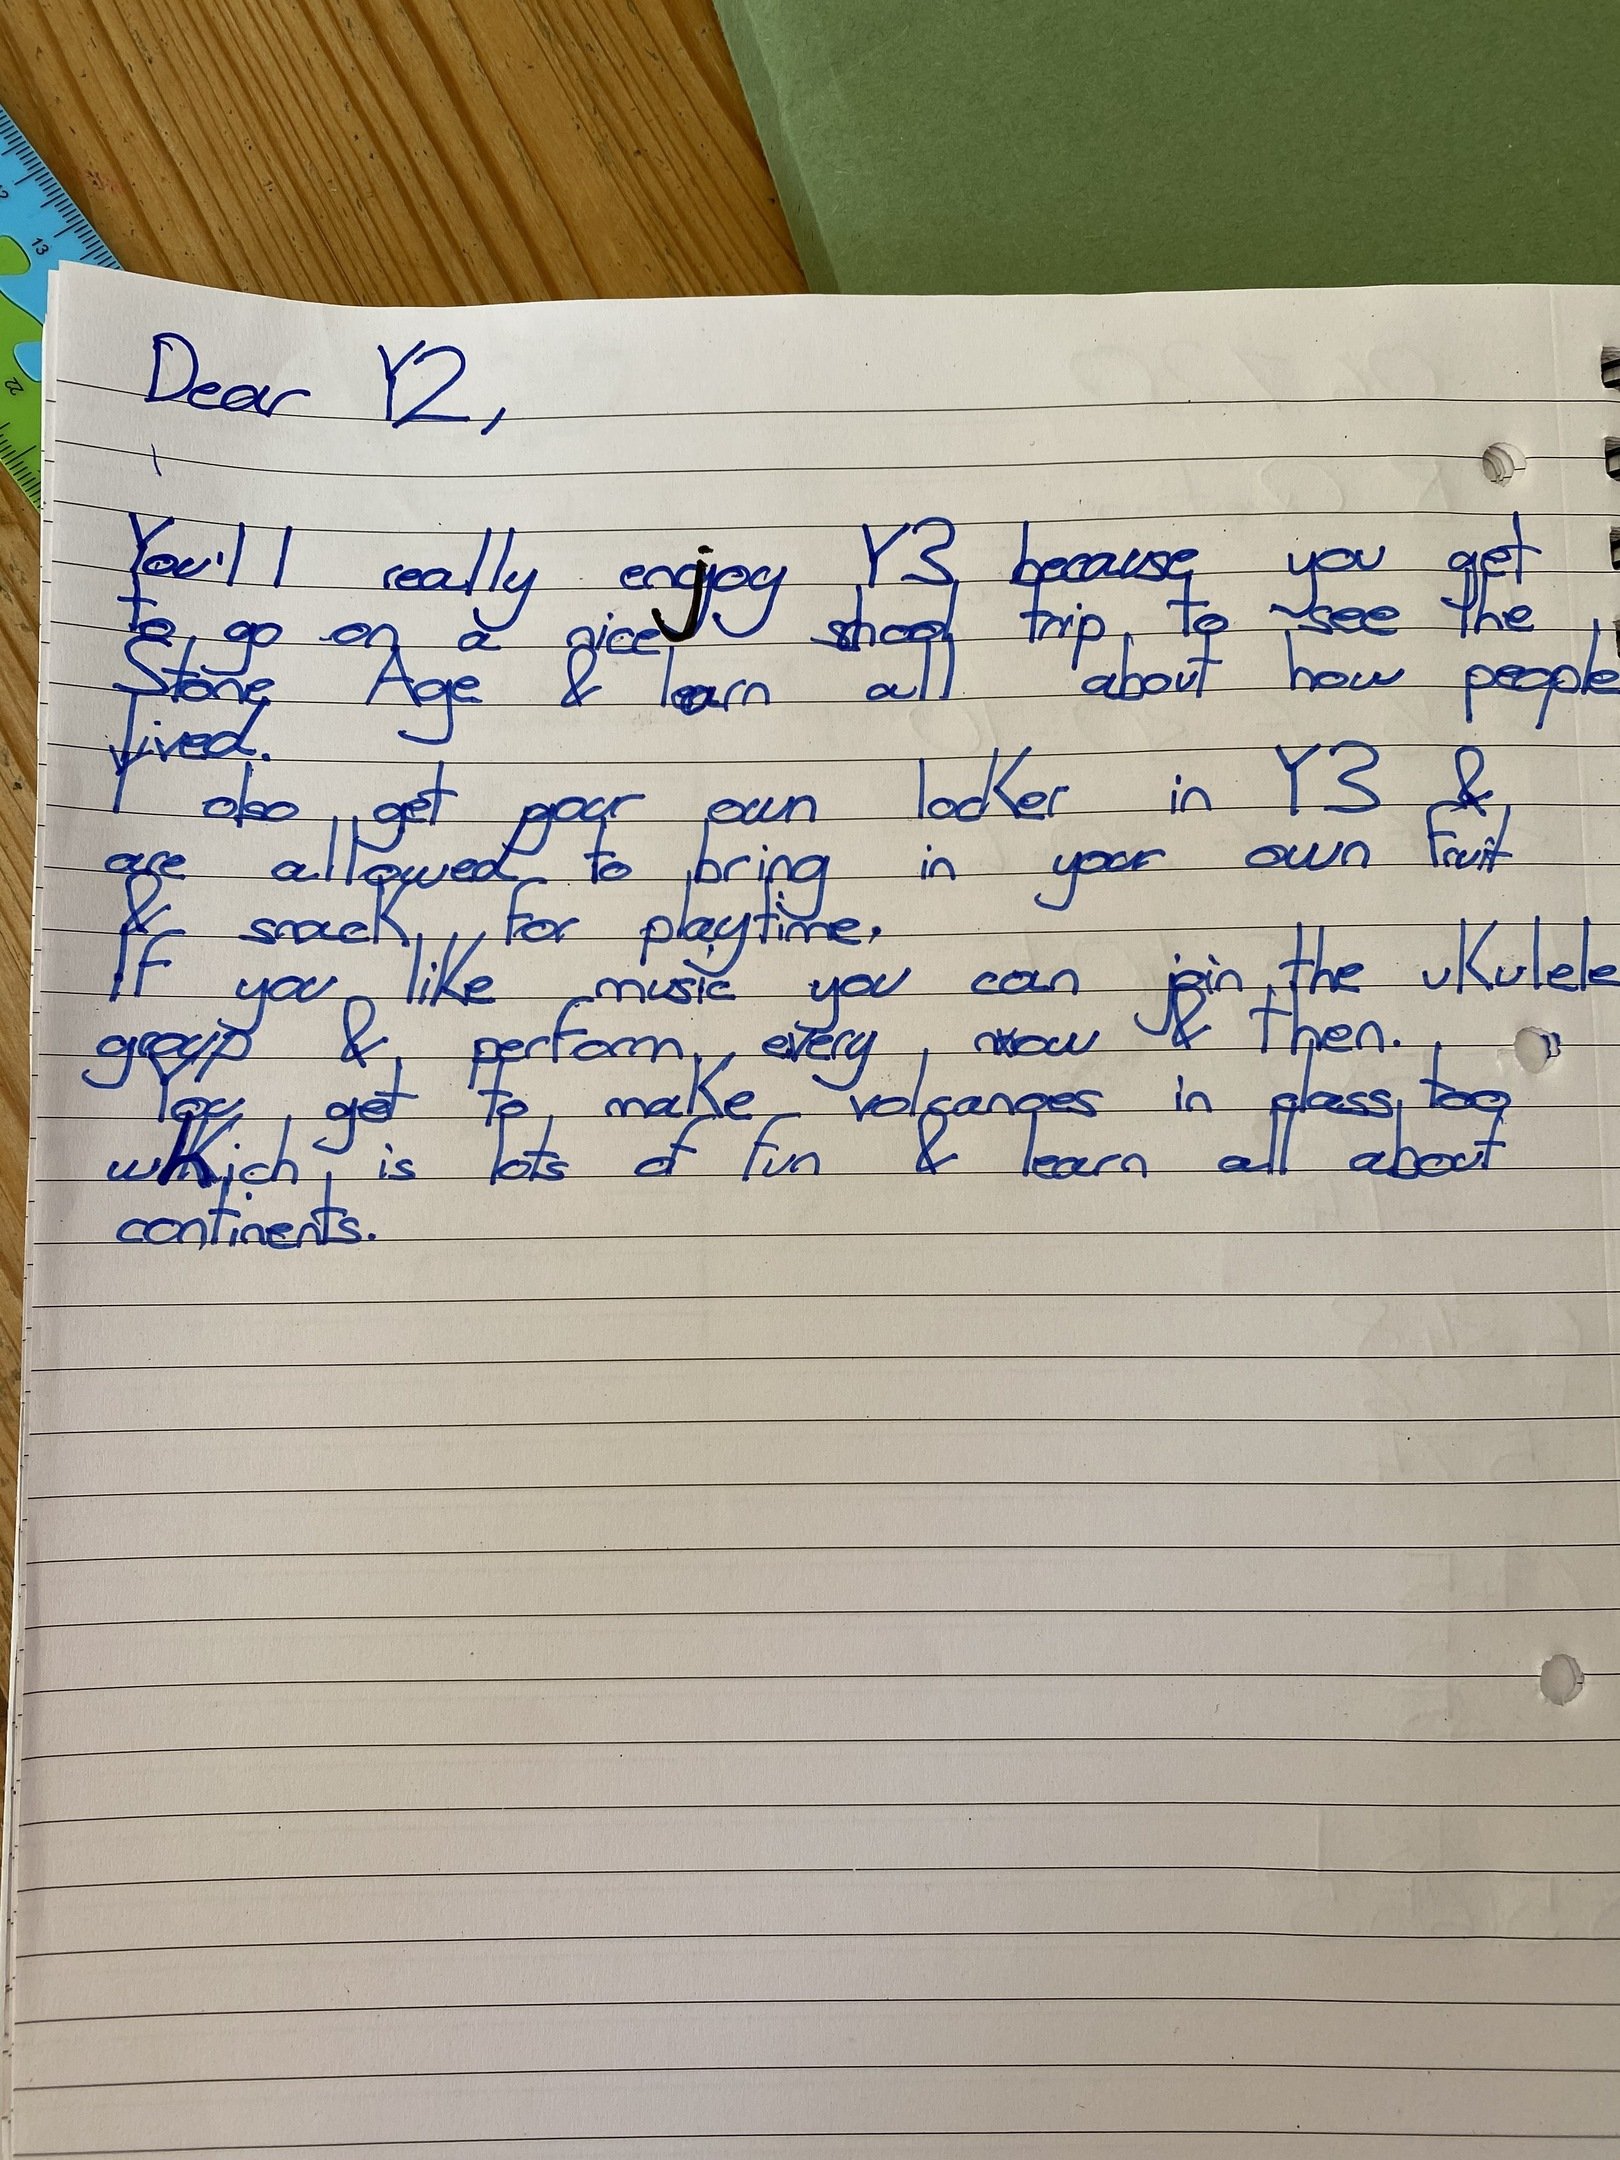 Dear Y2,
You'll really enjoy Y3 because you get
to go on a nice shool trip to see the
Stone Age & learn all about how people
lived.
I also get your own locker in Y3 &
are allowed to bring in your own fruit
& snack for playtime.
If you like music you can join the ukulele
group & perform every now & then.
You get to make volcanoes in class too
which is lots of fun & learn all about
continents.
13